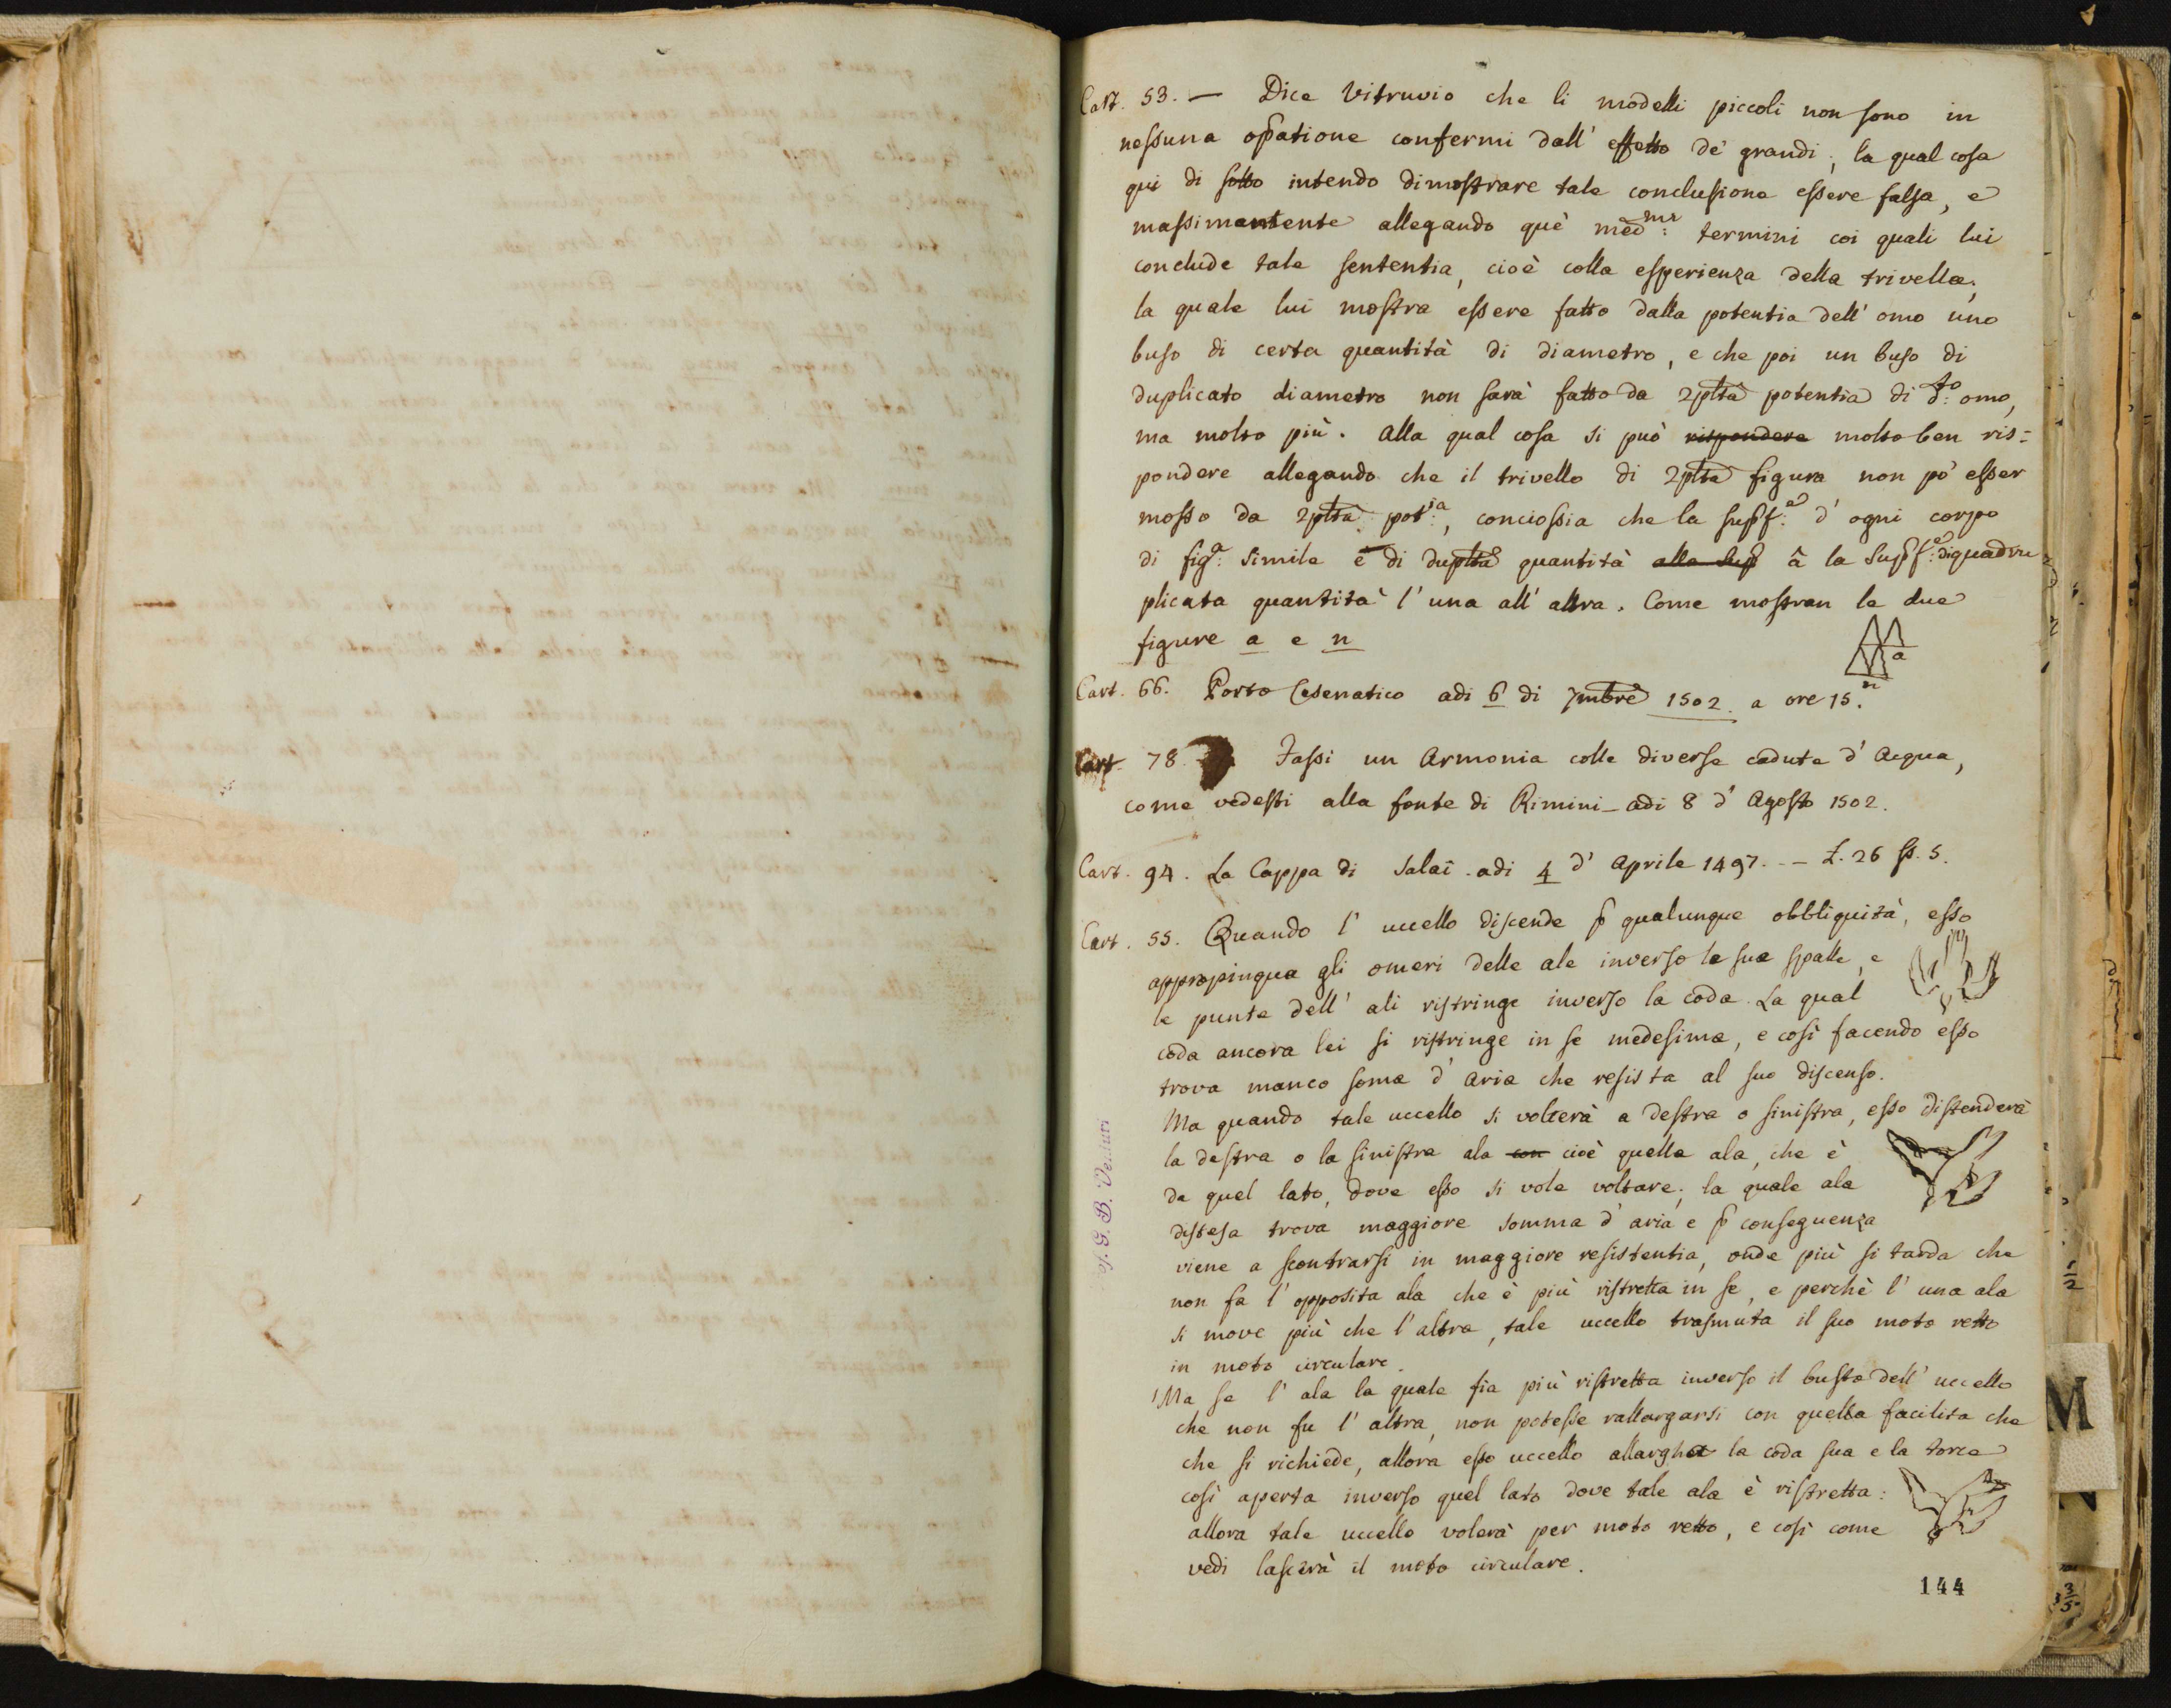 Cart. 53. — Dice Vitruvio che li modelli piccoli non sono in
nessuna op̃atione confermi dall' effetto de' grandi, la qual cosa
qui di sotto intendo dimostrare tale conclusione essere falsa, e
massimamente allegando què med.mi termini coi quali lui
conclude tale sententia, cioè colla esperienza della trivella,
la quale lui mostra essere fatto dalla potentia dell' omo uno
buso di certa quantità di diametro, e che poi un buso di
duplicato diametro non sarà fatto da 2plta potentia di d:to omo,
ma molto più. Alla qual cosa si può rispondere molto ben ris=
pondere allegando che il trivello di 2plta figura non pò esser
mosso da 2plta pot:ia, conciossia che la sup̃f:e d' ogni corpo
di fig:a simile e di duplta quantità alla sup̃ â la sup̃f:e di quadru
plicata quantità l' una all' altra. Come mostran le due
figure a e n
a
n
Cart. 66. Porto Cesenatico adi 6 di 7mbre 1502. a ore 15.
Cart. 78. Fassi un Armonia colle diverse cadute d' Acqua,
come vedesti alla fonte di Rimini – adi 8 d' Agosto 1502.
Cart. 94. La Cappa di Salaï adi 4 d' Aprile 1497. – L. 26 ss. 5.
Cart. 55. Quando l' uccello discende p̃ qualunque obbliquità, esso
appropinqua gli omeri delle ale inverso le sue spalle, e
le punte dell' ali ristringe inverso la coda. La qual
coda ancora lei si ristringe in se medesima, e così facendo esso
trova manco soma d' aria che resista al suo discenso.
Ma quando tale uccello si volterà a destra o sinistra, esso distenderà
la destra o la sinistra ala con cioè quella ala, che è
da quel lato, dove esso si vole voltare; la quale ala
distesa trova maggiore somma d' aria e p̃ conseguenza
viene a scontrarsi in maggiore resistentia, onde più si tarda che
non fa l' opposita ala che è più ristretta in se, e perchè l' una ala
si move più che l' altra, tale uccello trasmuta il suo moto retto
in moto circulare.
Ma se l' ala la quale fia più ristretta inverso il busto dell' uccello
che non fu l' altra, non potesse rallargarsi con quella facilità che
che si richiede, allora esso uccello allargha la coda sua e la torce
così aperta inverso quel lato dove tale ala è ristretta:
allora tale uccello volerà per moto retto, e così come
vedi lascerà il moto circulare.
144
G. B. Venturi
M